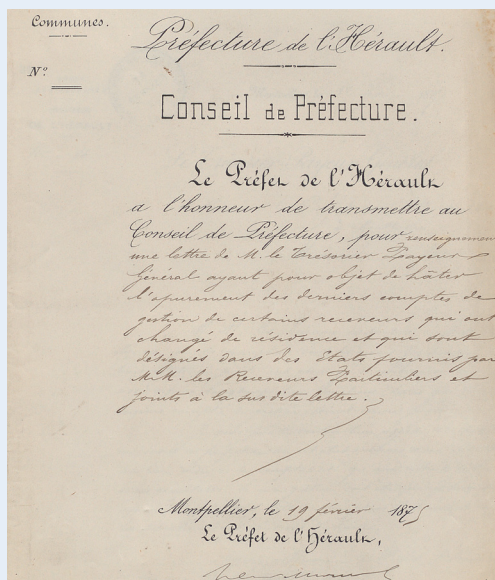 Communes.
Préfecture de l'Hérault.
N°
Conseil de Préfecture.
Le Préfet de l'Hérault
a l'honneur de transmettre au
Conseil de Préfecture, pour renseignement
une lettre de M. le Trésorier Payeur
Général ayant pour objet de hâter
l'apurement des derniers comptes de
gestion de certains receveurs qui ont
changé de résidence et qui sont
désignés dans des Etats fournis par
M.M. les Receveurs Particuliers et
joints à la susdite lettre.
Montpellier, le 19 février 1875
Le Préfet de l'Hérault,